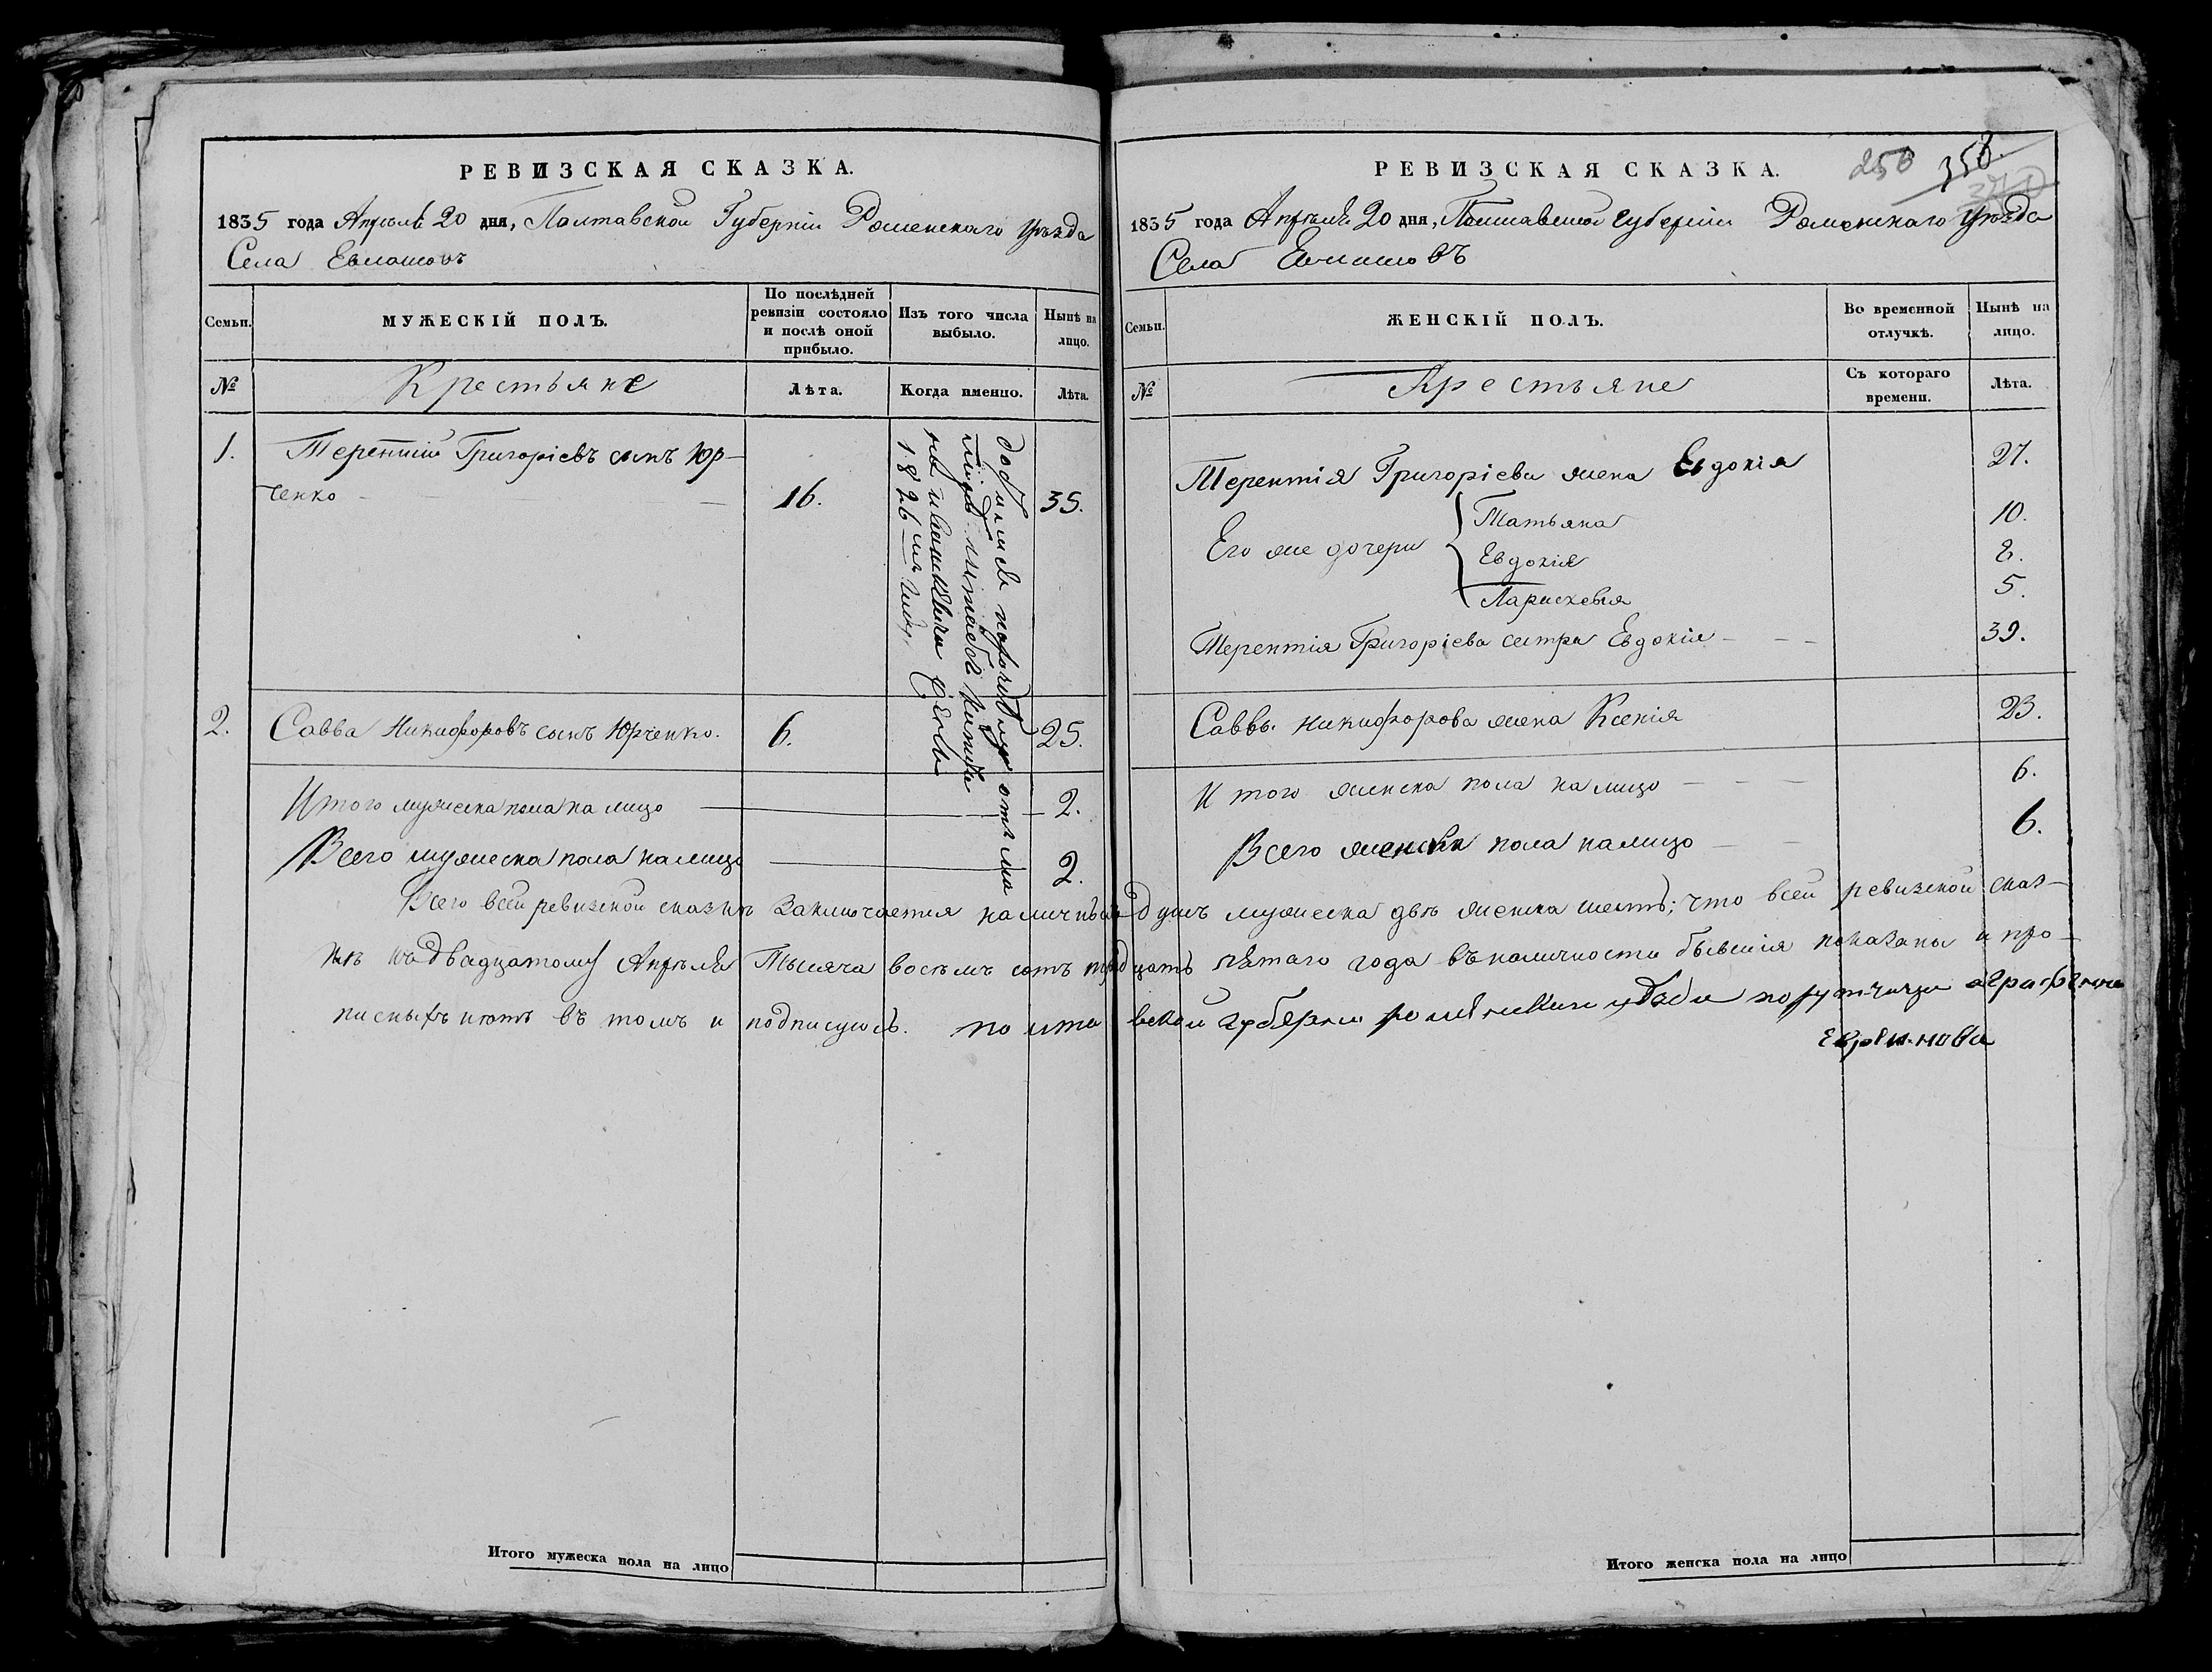 РЕВИЗСКАЯ СКАЗКА.
1835 года Апрѣля 20 дня, Полтавской Губерніи Роменскаго уѣзда
Села Евлашовъ
Семьи.
МУЖЕСКІЙ ПОЛЪ.
По послѣдней ревизіи состояло и послѣ оной прибыло.
Изъ того числа выбыло.
Нынѣ на лицо.
№
Крестьяне
Лѣта.
Когда именно.
Лѣта.
1.
Терентій Григоріевъ сынъ Юр-
ченко
16.
35.
1826
2.
Савва Никифоровъ сынъ Юрченко.
6.
25.
Итого мужеска пола на лицо
2.
Всего мужеска пола на лицо
2.
РЕВИЗСКАЯ СКАЗКА.
250
358.
1835 года Апрѣля 20 дня, Полтавской губерніи Роменскаго уѣзда
Села Евлашовъ
Семьи.
ЖЕНСКІЙ ПОЛЪ.
Во временной отлучкѣ.
Нынѣ на лицо.
№
Крестьяне
Съ котораго времени.
Лѣта.
Терентія Григоріева жена Евдокія
27.
Его же дочери
Татьяна
10.
Евдокія
8.
Параскевія
5.
Терентія Григоріева сестра Евдокія
39.
Саввы Никифорова жена Ксенія
23.
Итого женска пола на лицо
6.
Всего женска пола на лицо
6.
Всего всей ревизской сказкѣ заключается наличныхъ душъ мужеска двѣ женска шесть; что всей ревизской сказ-
кѣ къ двадцатому Апрѣля Тысяча восемь сотъ тридцать пятаго года въ наличности бывшія показаны и про-
писныхъ нѣтъ въ томъ и подписуюсь. полтавской губернии роменскаго уѣзда порутчица аграфена
евреинова
Итого мужеска пола на лицо
Итого женска пола на лицо